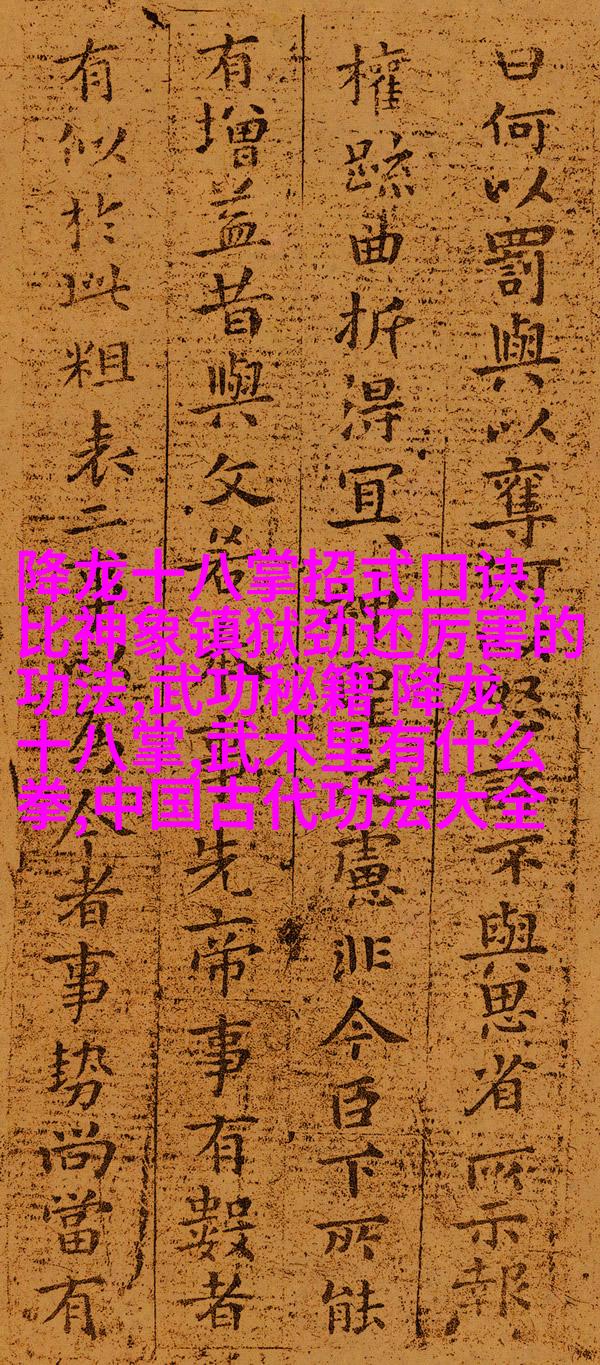 曰何以罰與以奪不與思省所示報
權疏曲折得宜神慮非今臣下所能
有增益昔與文若事先帝事有數者
有似於此粗表二今者事勢尚當有
降龙十八掌招式口诀,
比神象镇狱劲还厉害的
功法,武功秘籍 降龙
十八掌,武术里有什么
拳,中国古代功法大全